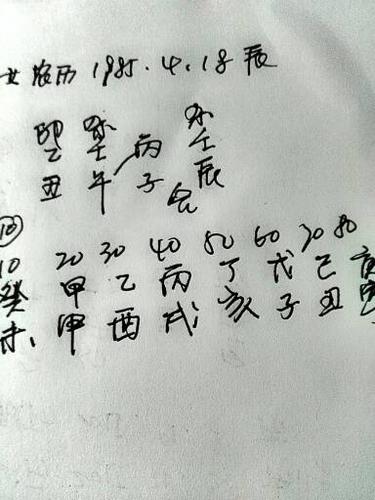 女农历 1985.4.18 辰
印 杀 杀
乙 壬 丙 壬
丑 午 子 会 辰
⑩
10 20 30 40 50 60 70 80
癸 甲 乙 丙 丁 戊 己 庚
未 申 酉 戌 亥 子 丑 寅